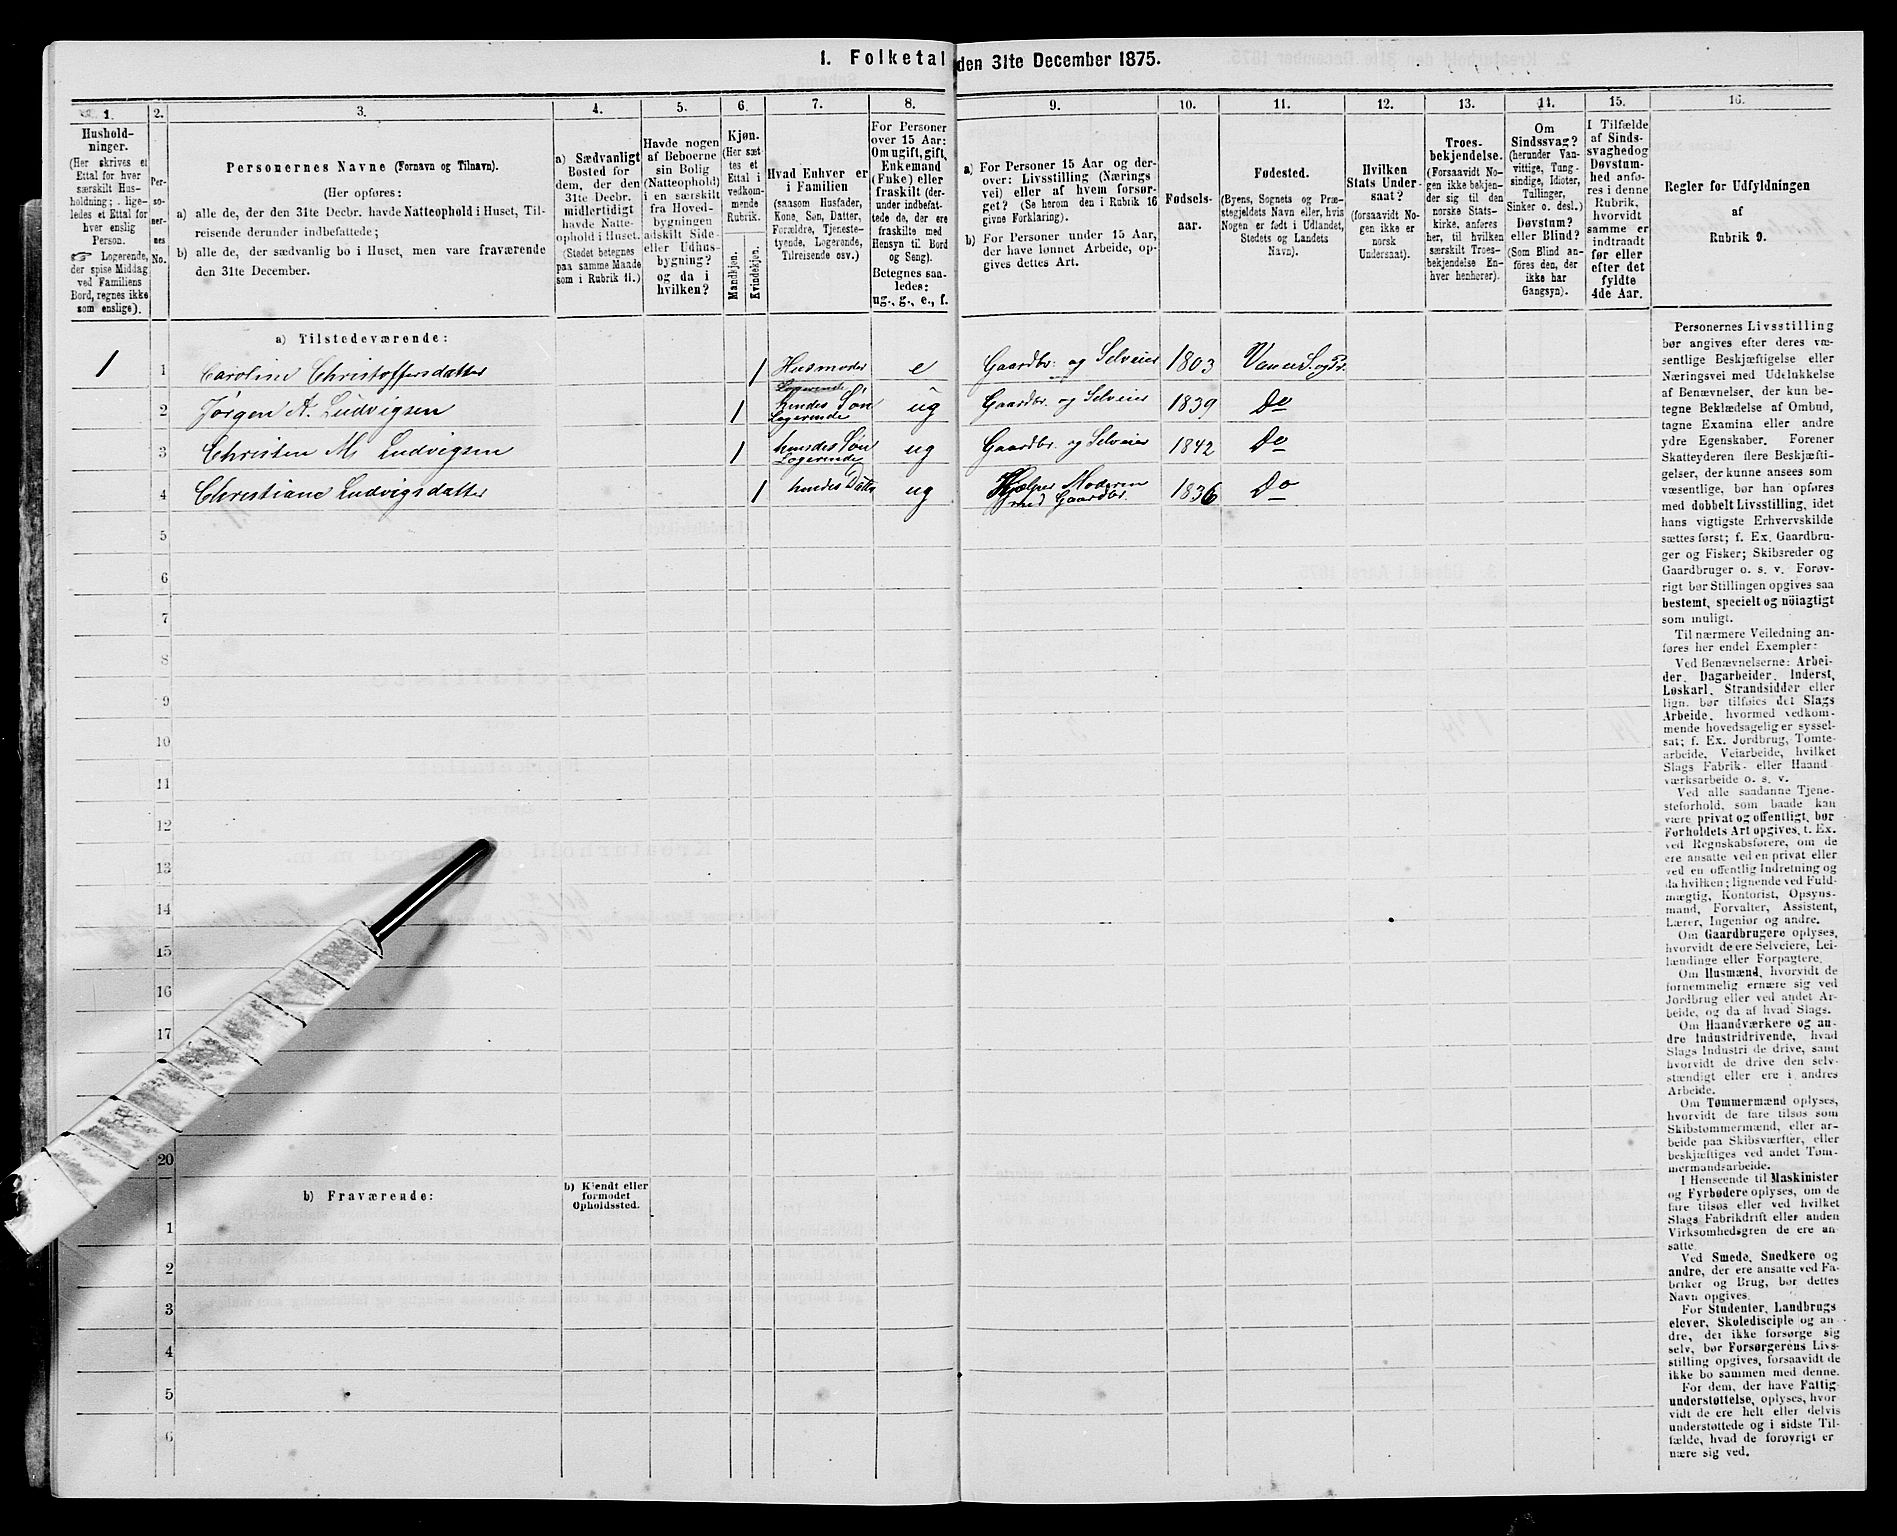 1. Folketal den 31te December 1875.
1. 2. 3. 4. 5. 6. 7. 8. 9. 10. 11. 12. 13. 14. 15. 16.
Hushold-
ninger.
(Her skrives et
Ettal for hver
særskilt Hus-
holdning; lige-
ledes et Ettal for
hver enslig
Person.
☞ Logerende,
der spise Middag
ved Familiens
Bord, regnes ikke
som enslige).
Per-
so-
ner-
nes
No.
Personernes Navne (Fornavn og Tilnavn).
(Her opføres:
a) alle de, der den 31te Decbr. havde Natteophold i Huset, Til-
reisende derunder indbefattede;
b) alle de, der sædvanlig bo i Huset, men vare fraværende
den 31te December.
a) Sædvanligt
Bosted for
dem, der den
31te Decbr.
midlertidigt
havde Natte-
ophold i Huset.
(Stedet betegnes
paa samme Maade
som i Rubrik 11.)
Havde nogen
af Beboerne
sin Bolig
(Natteophold)
i en særskilt
fra Hoved-
bygningen
adskilt Side-
eller Udhus-
bygning?
og da i
hvilken?
Kjøn.
(Her sæt-
tes et
Ettal i
vedkom-
mende
Rubrik.
Mandkjøn.
Kvindekjøn.
Hvad Enhver er
i Familien
(saasom Husfader,
Kone, Søn, Datter,
Forældre, Tjeneste-
tyende, Logerende,
Tilreisende osv.)
For Personer
over 15 Aar:
Om ugift, gift,
Enkemand
(Enke) eller
fraskilt (der-
under indbefat-
tede de, der ere
fraskilte med
Hensyn til Bord
og Seng).
Betegnes saa-
ledes:
ug., g., e., f.
a) For Personer 15 Aar og der-
over: Livsstilling (Nærings
vei) eller af hvem forsør-
get? (Se herom den i Rubrik 16
givne Forklaring).
b) For Personer under 15 Aar,
der have lønnet Arbeide, op-
gives dettes Art.
Fødsels-
aar.
Fødested.
(Byens, Sognets og Præ-
stegjeldets Navn eller, hvis
Nogen er født i Udlandet,
Stedets og Landets
Navn).
Hvilken
Stats Under-
saat?
(forsaavidt No-
gen ikke er
norsk
Undersaat).
Troes-
bekjendelse.
(Forsaavidt No-
gen ikke bekjen-
der sig til den
norske Stats-
kirke, anføres
her, til hvilken
særskilt Troes-
bekjendelse En-
hver henhører).
Om
Sindssvag?
(herunder Van-
vittige, Tung-
sindige, Idioter,
Tullinger,
Sinker o. desl.)
Døvstum?
eller Blind?
(Som Blind an-
føres den, der
ikke har
Gangsyn).
I Tilfælde
af Sinds-
svaghed og
Døvstum-
hed anfø-
res i denne
Rubrik,
hvorvidt
samme er
indtraadt
før eller
efter det
fyldte
4de Aar.
Regler for Udfyldningen
af
Rubrik 9.
a) Tilstedeværende:
1 1 Caroline Christoffersdatter 1 Husmoder e Gaardbr. og Selveier 1803 Vanse S. og Pr.
2 Jørgen A. Ludvigsen 1 Logerende hendes Søn ug Gaardbr. og Selveier 1839 Do
3 Christen M. Ludvigsen 1 Logerende hendes Søn ug Gaardbr. og Selveier 1842 Do
4 Christiane Ludvigsdatter 1 Logerende hendes Datter ug Hjælper Moderen med Gaardbr. 1836 Do
5
6
7
8
9
10
11
12
13
14
15
16
17
20
b) Fraværende:
b) Kjendt eller
formodet
Opholdssted.
1
2
3
4
5
6
Personernes Livsstilling
bør angives efter deres væ-
sentlige Beskjæftigelse eller
Næringsvei med Udelukkelse
af Benævnelser, der kun be-
tegne Beklædelse af Ombud,
tagne Examina eller andre
ydre Egenskaber. Forener
Skatteyderen flere Beskjæfti-
gelser, der kunne ansees som
væsentlige, bør han opføres
med dobbelt Livsstilling, idet
hans vigtigste Erhvervskilde
sættes først; f. Ex. Gaardbru-
ger og Fisker; Skibsreder og
Gaardbruger o. s. v. Forøv-
rigt bør Stillingen opgives saa
bestemt, specielt og nöiagtigt
som muligt.
Til nærmere Veiledning an-
føres her endel Exempler:
Ved Benævnelserne: Arbei-
der, Dagarbeider, Inderst,
Løskarl, Strandsidder eller
lign. bør tilføies det Slags
Arbeide, hvormed vedkom-
mende hovedsagelig er syssel-
sat; f. Ex. Jordbrug, Tomte-
arbeide, Veiarbeide, hvilket
Slags Fabrik- eller Haand-
værksarbeide o. s. v.
Ved alle saadanne Tjene-
steforhold, som baade kan
være privat og offentligt, bør
Forholdets Art opgives, t. Ex.
ved Regnskabsførere, om de
ere ansatte ved en privat eller
ved en offentlig Indretning og
da hvilken; lignende ved Fuld-
mægtig, Kontorist, Opsyns-
mand, Forvalter, Assistent,
Lærer, Ingeniør og andre.
Om Gaardbrugere oplyses,
hvorvidt de ere Selveiere, Lei-
lændinge eller Forpagtere.
Om Husmænd, hvorvidt de
fornemmelig ernære sig ved
Jordbrug eller ved andet Ar-
beide, og da af hvad Slags.
Om Haandværkere og an-
dre Industridrivende, hvad
Slags Industri de drive, samt
hvorvidt de drive den selv-
stændigt eller ere i andres
Arbeide.
Om Tømmermænd oplyses,
hvorvidt de fare tilsøs som
Skibstømmermænd, eller ar-
beide paa Skibsværfter, eller
beskjæftiges ved andet Tøm-
mermandsarbeide.
I Henseende til Maskinister
og Fyrbødere oplyses, om de
fare tilsøs eller ved hvilket
Slags Fabrikdrift eller anden
Virksomhedsgren de ere an-
satte.
Ved Smede, Snedkere og
andre, der ere ansatte ved Fa-
briker og Brug, bør dettes
Navn opgives.
For Studenter, Landbrugs
elever, Skoledisciple og an-
dre, der ikke forsørge sig
selv, bør Forsørgerens Livs-
stilling opgives, forsaavidt de
ikke bo sammen med denne.
For dem, der have Fattig-
understøttelse, oplyses, hvor-
vidt de ere helt eller delvis
understøttede og i sidste Til-
fælde, hvad de forøvrigt er-
nære sig ved.